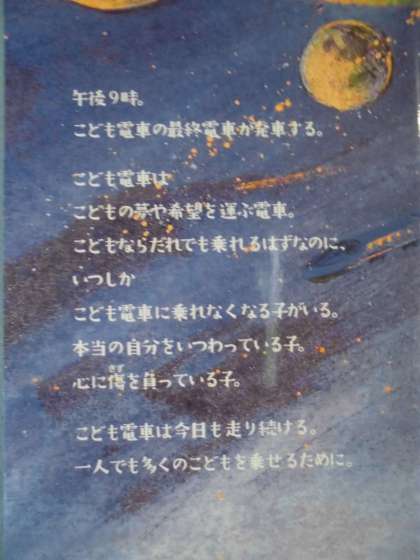 午後9時。
こども電車の最終電車が発車する。
こども電車は
こどもの夢や希望を運ぶ電車。
こどもならだれでも乗れるはずなのに、
いつしか
こども電車に乗れなくなる子がいる。
本当の自分をいつわっている子。
きず
心に傷を負っている子。
こども電車は今日も走り続ける。
一人でも多くのこどもを乗せるために。